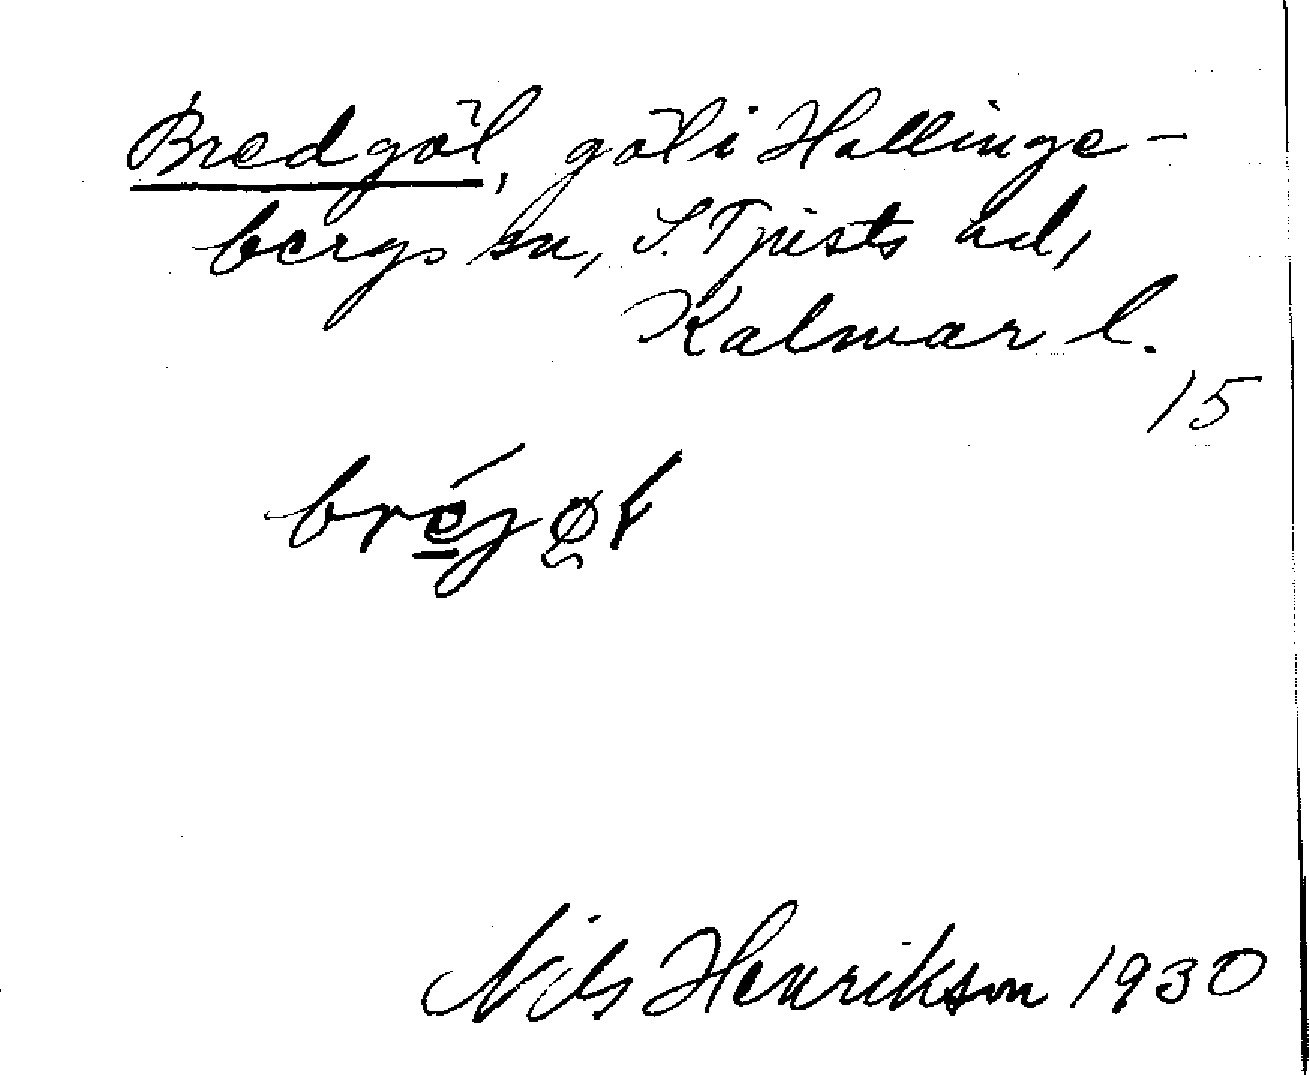 Bredgöl, göl i Hallinge-
bergs sn, S. Tjusts hd,
Kalmar l.
15
bréjøł
Nils Henrikson 1930